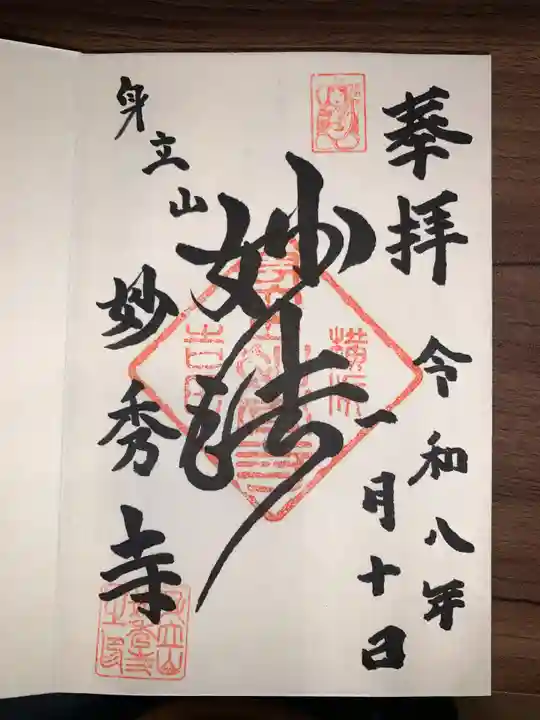 奉拝
令和八年
一月十日
妙法
身立山
妙秀寺
横浜